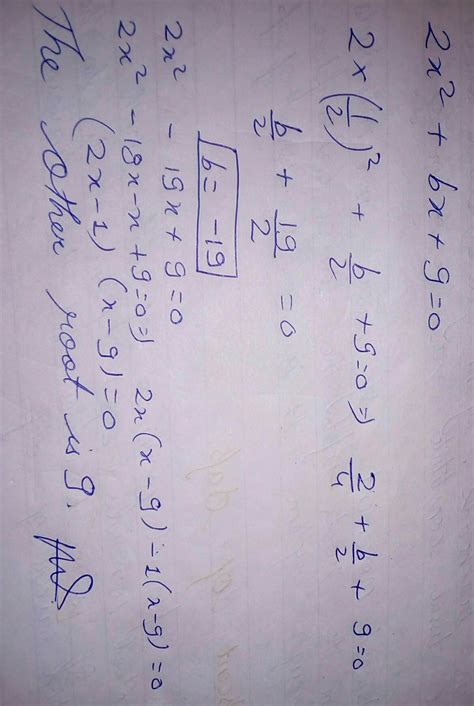 2x² + bx + 9 = 0
2 × (1/2)² + b/2 + 9 = 0 ⇒ 2/4 + b/2 + 9 = 0
b/2 + 19/2 = 0
b = -19
2x² - 19x + 9 = 0
2x² - 18x - x + 9 = 0 ⇒ 2x(x - 9) - 1(x - 9) = 0
(2x - 1) (x - 9) = 0
The other root is 9.